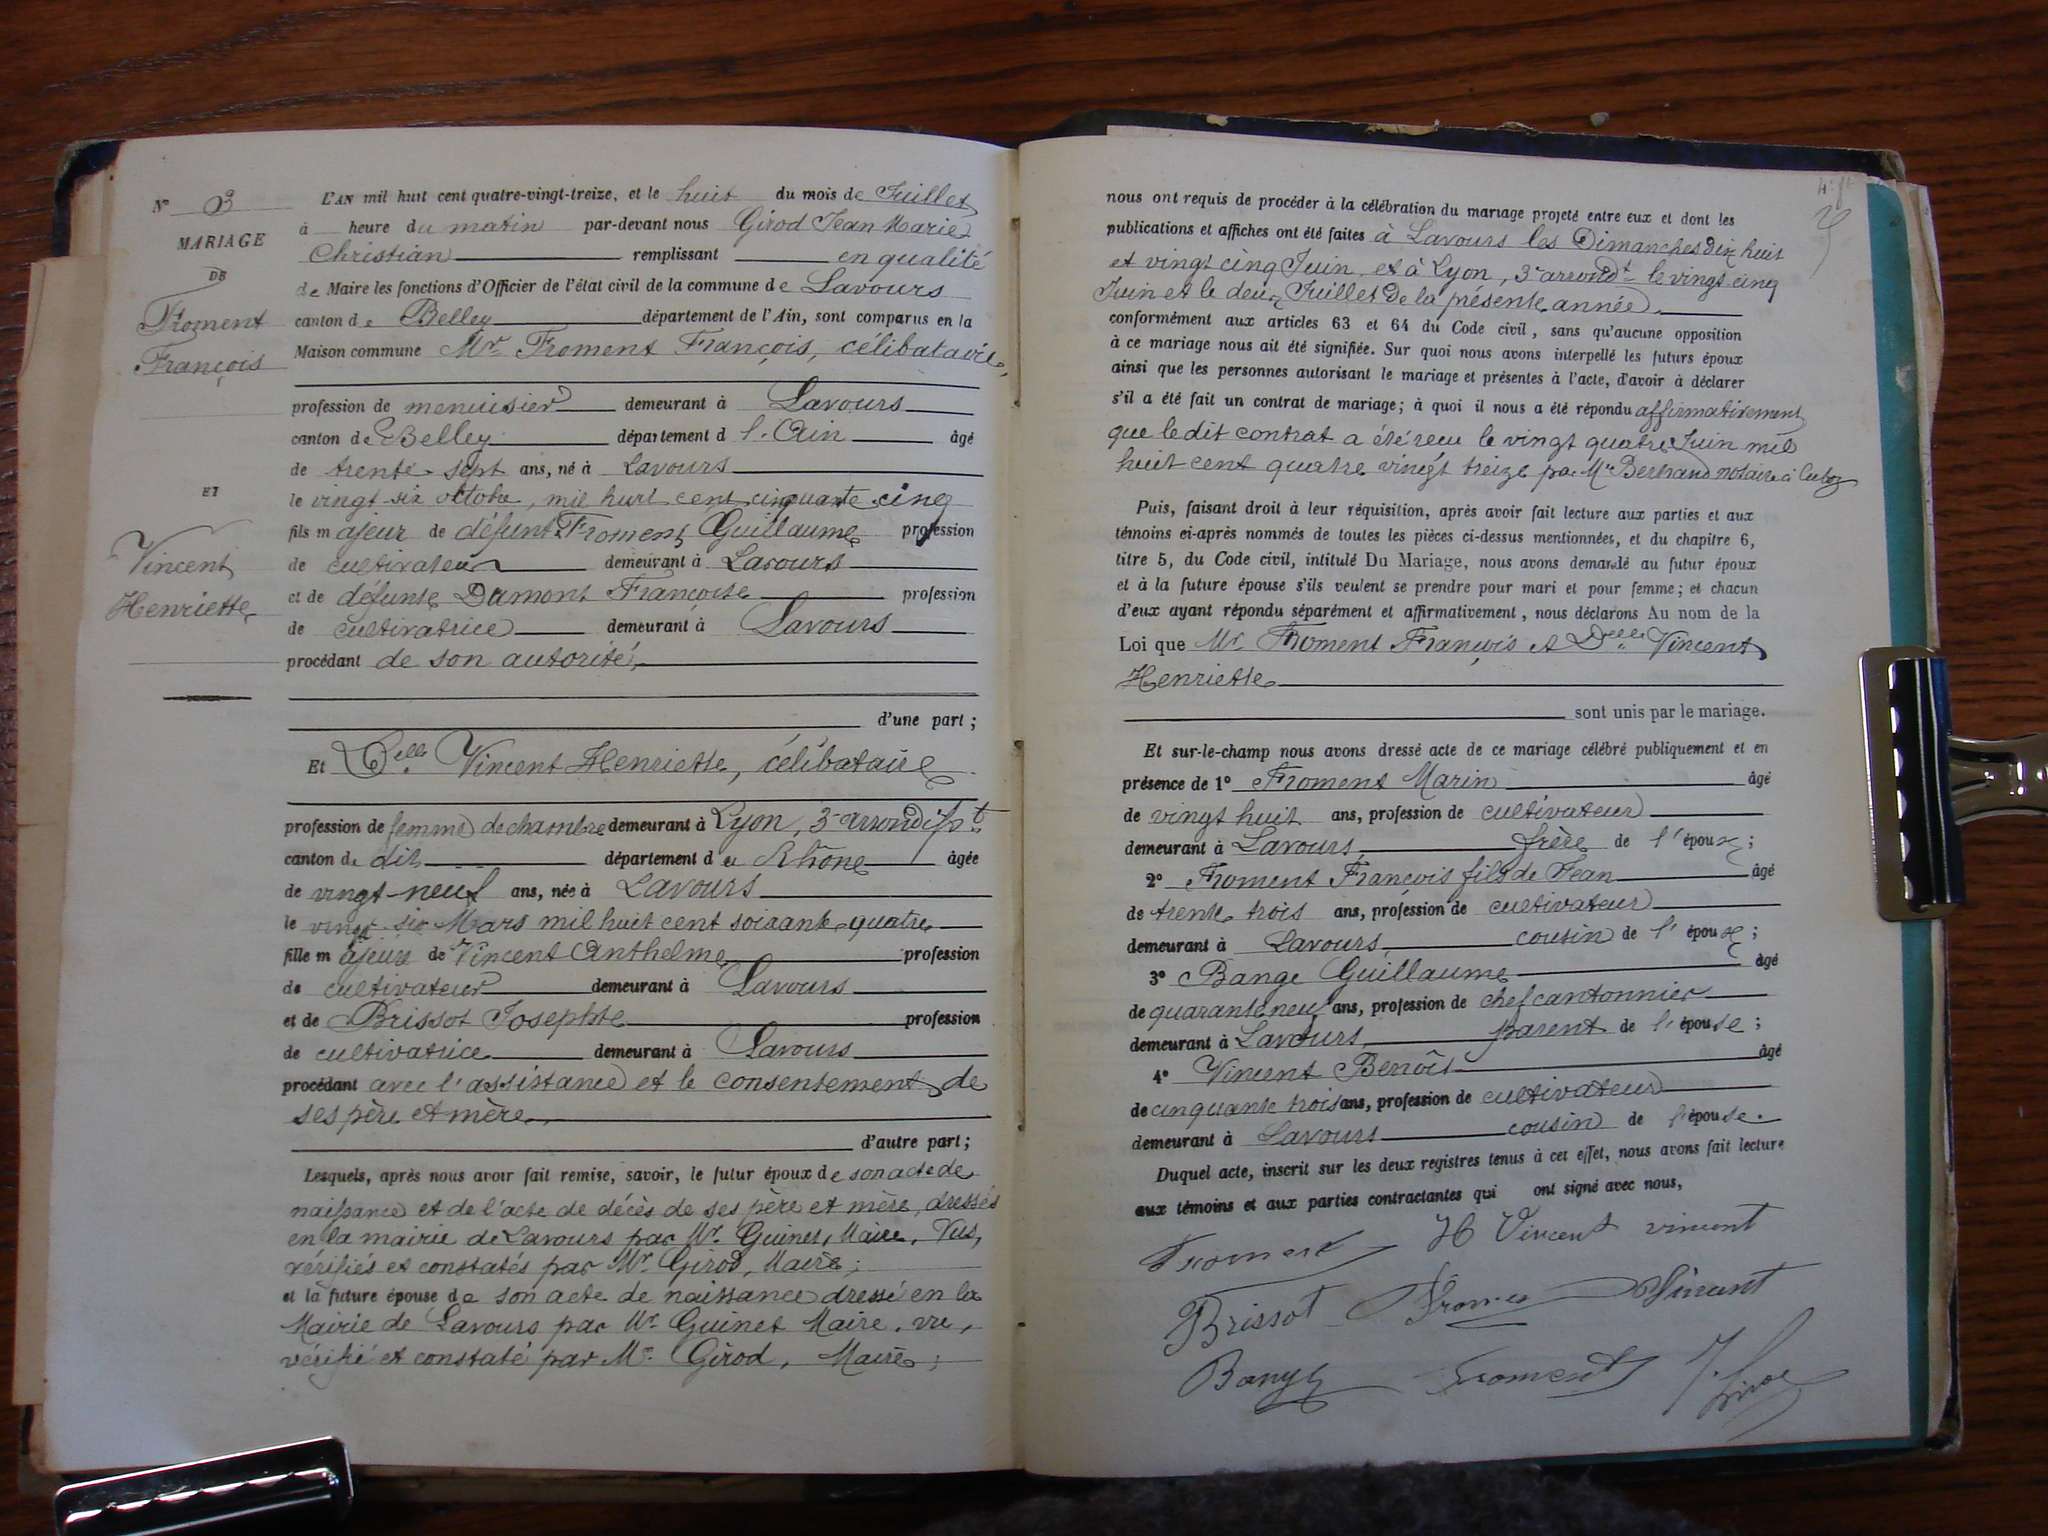 N° 3
MARIAGE
DE
Froment
François
ET
Vincent
Henriette
L'AN mil huit cent quatre-vingt-treize, et le huit du mois de Juillet
à heure du matin par-devant nous Girod Jean Marie
Christian remplissant en qualité
de Maire les fonctions d'Officier de l'état civil de la commune de Lavours
canton de Belley département de l'Ain, sont comparus en la
Maison commune Mr Froment François, célibataire,
profession de menuisier demeurant à Lavours
canton de Belley département d l'Ain âgé
de trente sept ans, né à Lavours
le vingt six octobre, mil huit cent cinquante cinq
fils majeur de défunt Froment Guillaume profession
de cultivateur demeurant à Lavours
et de défunte Dumont Françoise profession
de cultivatrice demeurant à Lavours
procédant de son autorité,
d'une part;
Et Delle Vincent Henriette, célibataire
profession de femme de chambre demeurant à Lyon, 3e arrondisst
canton de dit département du Rhône âgée
de vingt-neuf ans, née à Lavours
le vingt six Mars mil huit cent soixante-quatre
fille majeure de Vincent Anthelme profession
de cultivateur demeurant à Lavours
et de Brissot Josephte profession
de cultivatrice demeurant à Lavours
procédant avec l'assistance et le consentement de
ses père et mère
d'autre part;
Lesquels, après nous avoir fait remise, savoir, le futur époux de son acte de
naissance et de l'acte de décès de ses père et mère, dressés
en la mairie de Lavours par Mr Guinet, Maire, Vus,
vérifiés et constatés par Mr Girod, Maire;
et la future épouse de son acte de naissance dressé en la
Mairie de Lavours par Mr Guinet Maire, vu,
vérifié et constaté par Mr Girod, Maire;
nous ont requis de procéder à la célébration du mariage projeté entre eux et dont les
publications et affiches ont été faites à Lavours les Dimanches dix huit
et vingt cinq Juin, et à Lyon, 3e arrondt le vingt-cinq
Juin et le deux Juillet de la présente année.
conformément aux articles 63 et 64 du Code civil, sans qu'aucune opposition
à ce mariage nous ait été signifiée. Sur quoi nous avons interpellé les futurs époux
ainsi que les personnes autorisant le mariage et présentes à l'acte, d'avoir à déclarer
s'il a été fait un contrat de mariage; à quoi il nous a été répondu affirmativement
que le dit contrat a été reçu le vingt quatre Juin mil
huit cent quatre vingt treize par Me Bertrand notaire à Culoz
Puis, faisant droit à leur réquisition, après avoir fait lecture aux parties et aux
témoins ci-après nommés de toutes les pièces ci-dessus mentionnées, et du chapitre 6,
titre 5, du Code civil, intitulé Du Mariage, nous avons demandé au futur époux
et à la future épouse s'ils veulent se prendre pour mari et pour femme; et chacun
d'eux ayant répondu séparément et affirmativement, nous déclarons Au nom de la
Loi que Mr Froment François et Delle Vincent
Henriette
sont unis par le mariage.
Et sur-le-champ nous avons dressé acte de ce mariage célébré publiquement et en
présence de 1° Froment Marin âgé
de vingt huit ans, profession de cultivateur
demeurant à Lavours frère de l'époux;
2° Froment François fils de Jean âgé
de trente trois ans, profession de cultivateur
demeurant à Lavours cousin de l'époux;
3° Bange Guillaume âgé
de quarante neuf ans, profession de chef cantonnier
demeurant à Lavours parent de l'épouse;
4° Vincent Benoît âgé
de cinquante trois ans, profession de cultivateur
demeurant à Lavours cousin de l'épouse.
Duquel acte, inscrit sur les deux registres tenus à cet effet, nous avons fait lecture
aux témoins et aux parties contractantes qui ont signé avec nous,
Froment H Vincent vincent
Brissot Froment Vincent
Bange Froment J. Girod